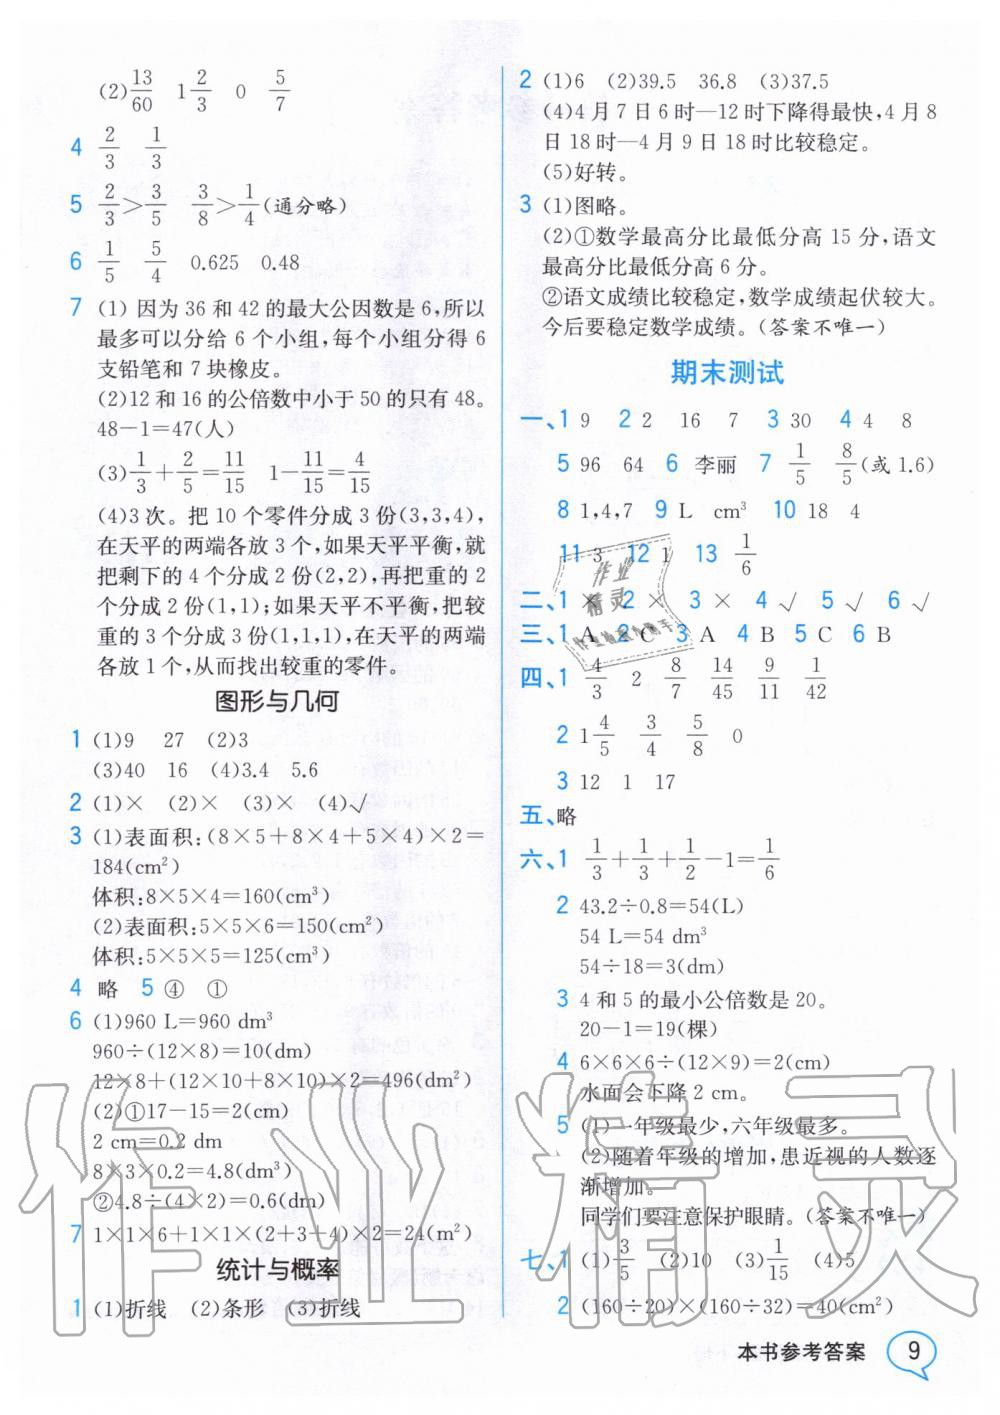 (2)13/60 1 2/3 0 5/7
4 2/3 1/3
5 2/3>3/5 3/8>1/4(通分略)
6 1/5 5/4 0.625 0.48
7 (1) 因为 36 和 42 的最大公因数是 6,所以
最多可以分给 6 个小组,每个小组分得 6
支铅笔和 7 块橡皮。
(2)12 和 16 的公倍数中小于 50 的只有 48。
48-1=47(人)
(3)1/3+2/5=11/15 1-11/15=4/15
(4)3 次。把 10 个零件分成 3 份(3,3,4),
在天平的两端各放 3 个,如果天平平衡,就
把剩下的 4 个分成 2 份(2,2),再把重的 2
个分成 2 份(1,1);如果天平不平衡,把较
重的 3 个分成 3 份(1,1,1),在天平的两端
各放 1 个,从而找出较重的零件。
图形与几何
1 (1)9 27 (2)3
(3)40 16 (4)3.4 5.6
2 (1)× (2)× (3)× (4)√
3 (1)表面积:(8×5+8×4+5×4)×2=
184(cm²)
体积:8×5×4=160(cm³)
(2)表面积:5×5×6=150(cm²)
体积:5×5×5=125(cm³)
4 略 5 ④ ①
6 (1)960 L=960 dm³
960÷(12×8)=10(dm)
12×8+(12×10+8×10)×2=496(dm²)
(2)①17-15=2(cm)
2 cm=0.2 dm
8×3×0.2=4.8(dm³)
②4.8÷(4×2)=0.6(dm)
7 1×1×6+1×1×(2+3+4)×2=24(m²)
统计与概率
1 (1)折线 (2)条形 (3)折线
2 (1)6 (2)39.5 36.8 (3)37.5
(4)4 月 7 日 6 时—12 时下降得最快,4 月 8
日 18 时—4 月 9 日 18 时比较稳定。
(5)好转。
3 (1)图略。
(2)①数学最高分比最低分高 15 分,语文
最高分比最低分高 6 分。
②语文成绩比较稳定,数学成绩起伏较大。
今后要稳定数学成绩。(答案不唯一)
期末测试
一、1 9 2 2 16 7 3 30 4 4 8
5 96 64 6 李丽 7 1/5 8/5(或 1.6)
8 1,4,7 9 L cm³ 10 18 4
11 3 12 1 13 1/6
二、1 × 2 × 3 × 4 √ 5 √ 6 √
三、1 A 2 C 3 A 4 B 5 C 6 B
四、1 4/3 2 8/7 14/45 9/11 1/42
2 1 4/5 3/4 5/8 0
3 12 1 17
五、略
六、1 1/3+1/3+1/2-1=1/6
2 43.2÷0.8=54(L)
54 L=54 dm³
54÷18=3(dm)
3 4 和 5 的最小公倍数是 20。
20-1=19(棵)
4 6×6×6÷(12×9)=2(cm)
水面会下降 2 cm。
5 (1)一年级最少,六年级最多。
(2)随着年级的增加,患近视的人数逐
渐增加。
同学们要注意保护眼睛。(答案不唯一)
七、1 (1)3/5 (2)10 (3)1/15 (4)5
2 (160÷20)×(160÷32)=40(cm²)
本书参考答案 9
作业精灵
作业
精灵